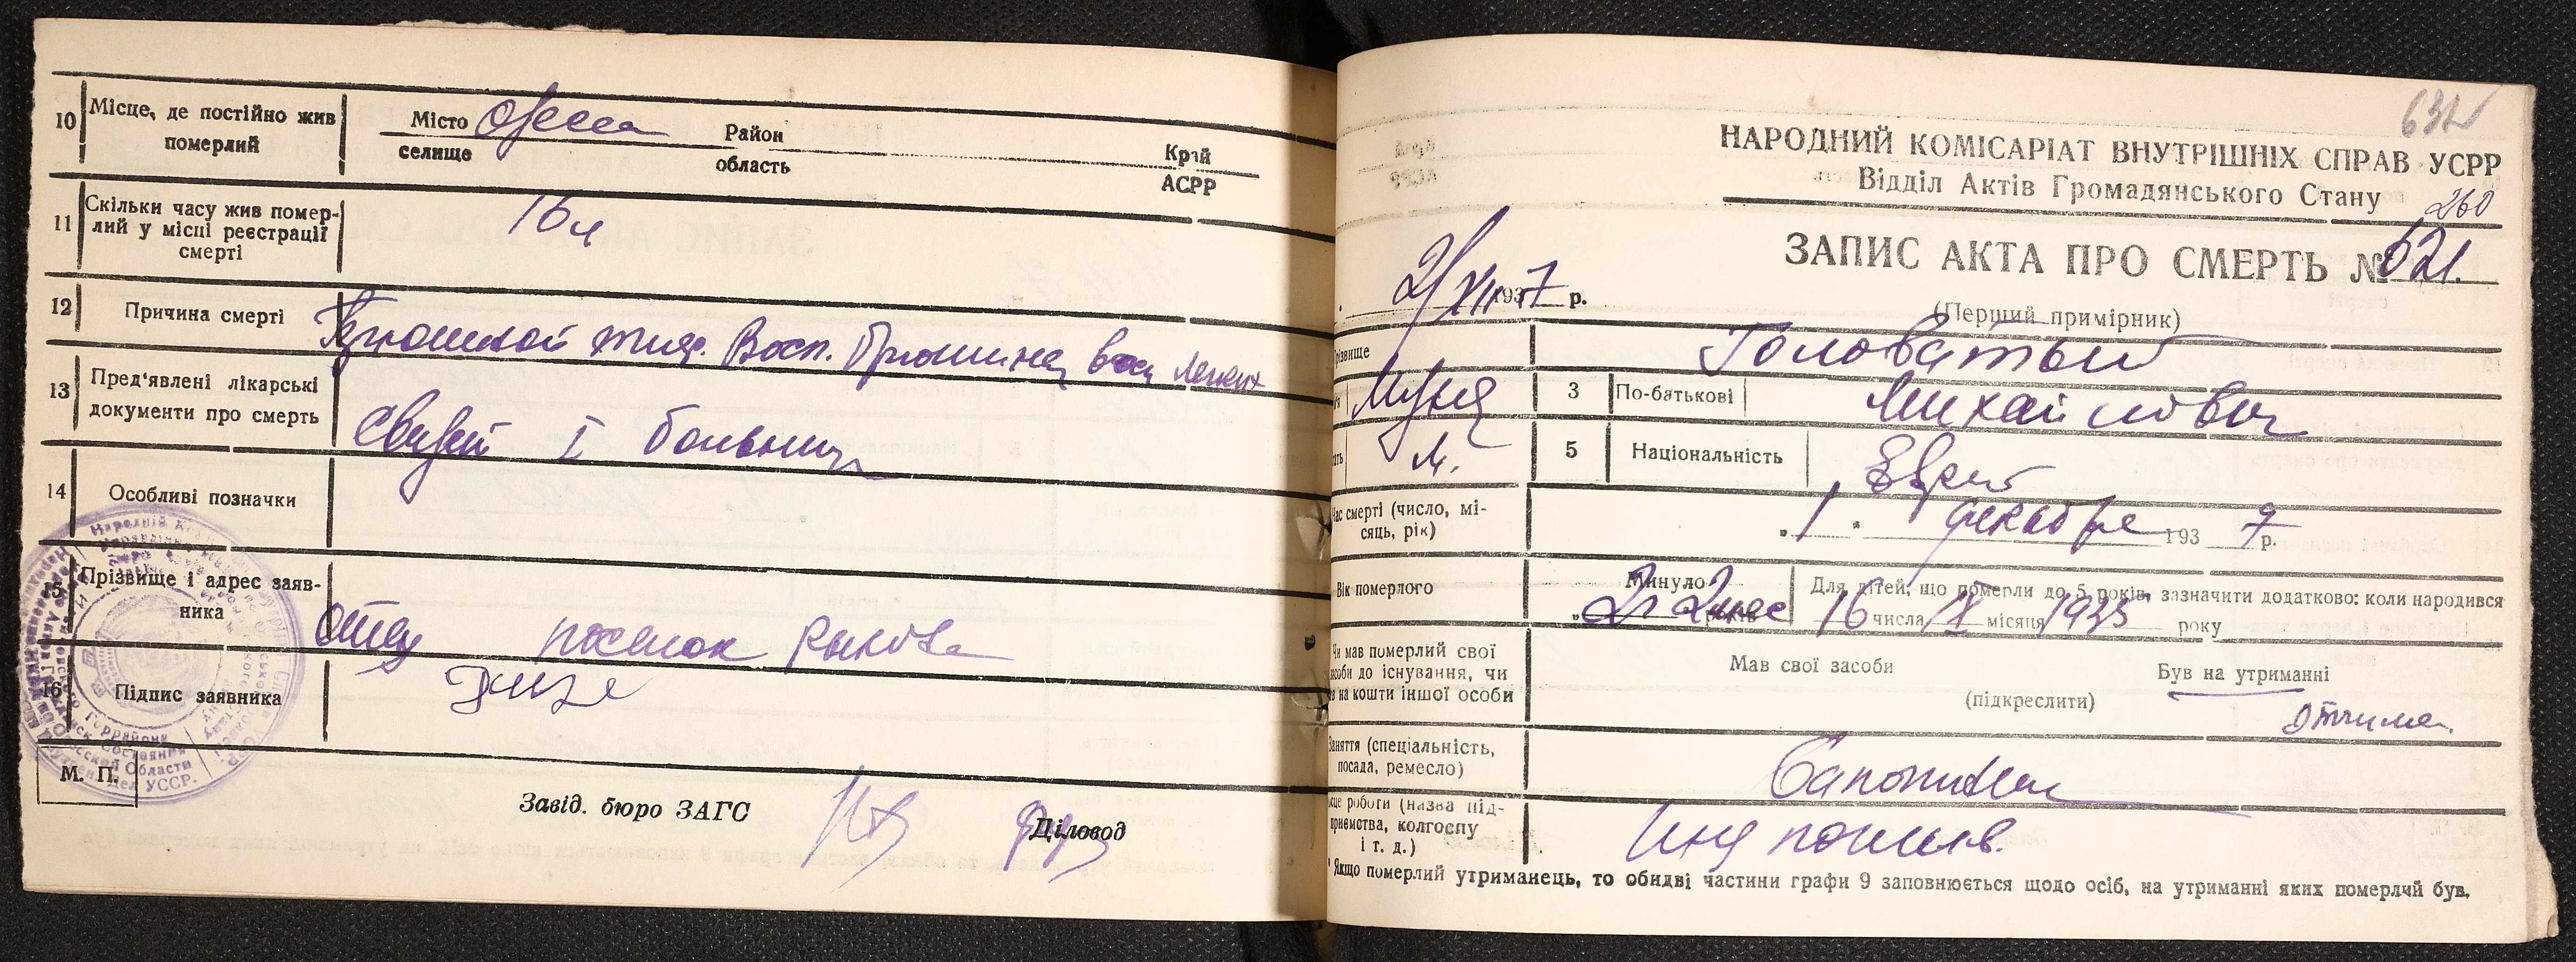 10 Місце, де постійно жив померлий
Місто Одесса Район Край
селище область АСРР
11 Скільки часу жив помер-
лий у місці реєстрації
смерті
16 л
12 Причина смерті
Брюшной тиф. Восп. брюшины восп легких
13 Пред'явлені лікарські
документи про смерть
Свидет I больницы
14 Особливі позначки
15 Прізвище і адрес заяв-
ника
Отец поселок
16 Підпис заявника
М. П.
Завід. бюро ЗАГС
Діловод
632
НАРОДНИЙ КОМІСАРІАТ ВНУТРІШНІХ СПРАВ УСРР
Відділ Актів Громадянського Стану
260
ЗАПИС АКТА ПРО СМЕРТЬ № 621.
2/XII 1937 р.
(Перший примірник)
різвище Головатый
Муня
3 По-батькові Михайлович
м.
5 Національність Еврей
Час смерті (число, мі-
сяць, рік)
„ 1 " декабря 1937 р.
Вік померлого
Минуло
„ 2 г 2 мес років
Для дітей, що померли до 5 років, зазначити додатково: коли народився
16 числа IX місяця 1935 року
Чи мав померлий свої
засоби до існування, чи
на кошти іншої особи
Мав свої засоби
(підкреслити)
Був на утриманні
Заняття (спеціальність,
посада, ремесло)
Сапожник
сце роботи (назва під-
приємства, колгоспу
і т. д.)
Инд пошив.
* Якщо померлий утриманець, то обидві частини графи 9 заповнюється щодо осіб, на утриманні яких померлий був.